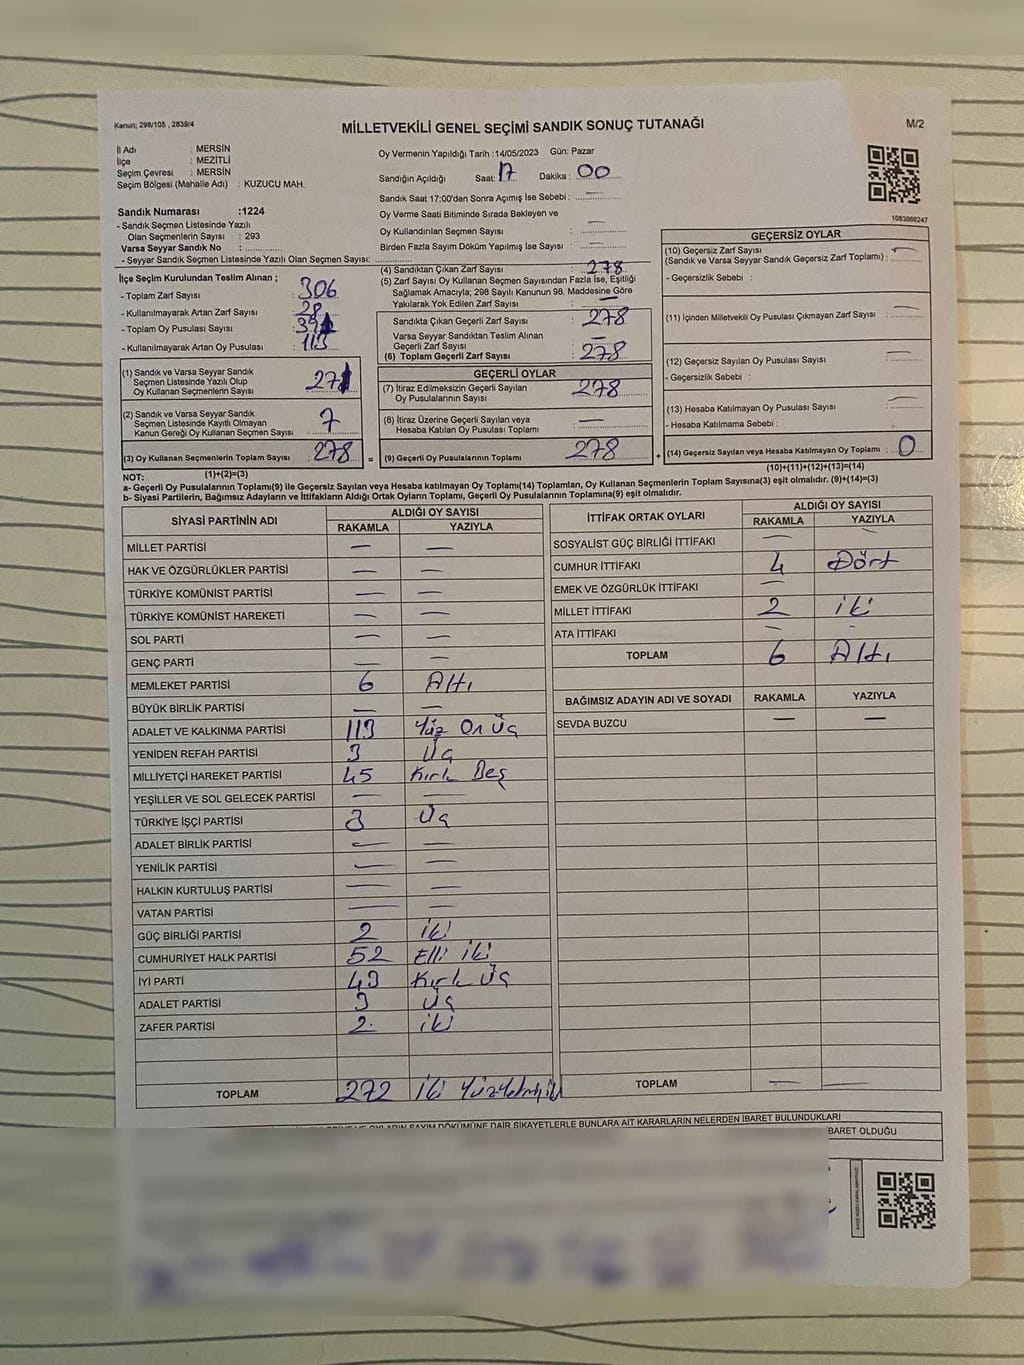 Kanun; 298/105 , 2839/4
MİLLETVEKİLİ GENEL SEÇİMİ SANDIK SONUÇ TUTANAĞI
M/2
İl Adı : MERSİN
İlçe : MEZİTLİ
Seçim Çevresi : MERSİN
Seçim Bölgesi (Mahalle Adı) : KUZUCU MAH.
Sandık Numarası :1224
- Sandık Seçmen Listesinde Yazılı
Olan Seçmenlerin Sayısı : 293
Varsa Seyyar Sandık No :
- Seyyar Sandık Seçmen Listesinde Yazılı Olan Seçmen Sayısı:
Oy Vermenin Yapıldığı Tarih :14/05/2023 Gün: Pazar
Sandığın Açıldığı Saat: 17 Dakika : 00
Sandık Saat 17:00'den Sonra Açımış İse Sebebi : —
Oy Verme Saati Bitiminde Sırada Bekleyen ve
Oy Kullandırılan Seçmen Sayısı : —
Birden Fazla Sayım Döküm Yapılmış İse Sayısı : —
1083668247
İlçe Seçim Kurulundan Teslim Alınan ;
- Toplam Zarf Sayısı : 306
- Kullanılmayarak Artan Zarf Sayısı : 28
- Toplam Oy Pusulası Sayısı :
- Kullanılmayarak Artan Oy Pusulası : 113
(1) Sandık ve Varsa Seyyar Sandık
Seçmen Listesinde Yazılı Olup
Oy Kullanan Seçmenlerin Sayısı : 271
(2) Sandık ve Varsa Seyyar Sandık
Seçmen Listesinde Kayıtlı Olmayan
Kanun Gereği Oy Kullanan Seçmen Sayısı : 7
(3) Oy Kullanan Seçmenlerin Toplam Sayısı : 278
(1)+(2)=(3)
(4) Sandıktan Çıkan Zarf Sayısı : 278
(5) Zarf Sayısı Oy Kullanan Seçmen Sayısından Fazla İse, Eşitliği
Sağlamak Amacıyla; 298 Sayılı Kanunun 98. Maddesine Göre
Yakılarak Yok Edilen Zarf Sayısı : —
Sandıkta Çıkan Geçerli Zarf Sayısı : 278
Varsa Seyyar Sandıktan Teslim Alınan
Geçerli Zarf Sayısı : —
(6) Toplam Geçerli Zarf Sayısı : 278
GEÇERLİ OYLAR
(7) İtiraz Edilmeksizin Geçerli Sayılan
Oy Pusulalarının Sayısı : 278
(8) İtiraz Üzerine Geçerli Sayılan veya
Hesaba Katılan Oy Pusulası Toplamı : —
= (9) Geçerli Oy Pusulalarının Toplamı : 278
GEÇERSİZ OYLAR
(10) Geçersiz Zarf Sayısı
(Sandık ve Varsa Seyyar Sandık Geçersiz Zarf Toplamı) : —
- Geçersizlik Sebebi :
(11) İçinden Milletvekili Oy Pusulası Çıkmayan Zarf Sayısı : —
(12) Geçersiz Sayılan Oy Pusulası Sayısı : —
- Geçersizlik Sebebi :
(13) Hesaba Katılmayan Oy Pusulası Sayısı : —
- Hesaba Katılmama Sebebi :
+ (14) Geçersiz Sayılan veya Hesaba Katılmayan Oy Toplamı : 0
(10)+(11)+(12)+(13)=(14)
NOT:
a- Geçerli Oy Pusulalarının Toplamı(9) ile Geçersiz Sayılan veya Hesaba katılmayan Oy Toplamı(14) Toplamları, Oy Kullanan Seçmenlerin Toplam Sayısına(3) eşit olmalıdır. (9)+(14)=(3)
b- Siyasi Partilerin, Bağımsız Adayların ve İttifakların Aldığı Ortak Oyların Toplamı, Geçerli Oy Pusulalarının Toplamına(9) eşit olmalıdır.
SİYASİ PARTİNİN ADI ALDIĞI OY SAYISI
RAKAMLA YAZIYLA
MİLLET PARTİSİ — —
HAK VE ÖZGÜRLÜKLER PARTİSİ — —
TÜRKİYE KOMÜNİST PARTİSİ — —
TÜRKİYE KOMÜNİST HAREKETİ — —
SOL PARTİ — —
GENÇ PARTİ — —
MEMLEKET PARTİSİ 6 Altı
BÜYÜK BİRLİK PARTİSİ — —
ADALET VE KALKINMA PARTİSİ 113 Yüz On Üç
YENİDEN REFAH PARTİSİ 3 Üç
MİLLİYETÇİ HAREKET PARTİSİ 45 Kırk Beş
YEŞİLLER VE SOL GELECEK PARTİSİ — —
TÜRKİYE İŞÇİ PARTİSİ 3 Üç
ADALET BİRLİK PARTİSİ — —
YENİLİK PARTİSİ — —
HALKIN KURTULUŞ PARTİSİ — —
VATAN PARTİSİ — —
GÜÇ BİRLİĞİ PARTİSİ 2 iki
CUMHURİYET HALK PARTİSİ 52 Elli iki
İYİ PARTİ 43 Kırk Üç
ADALET PARTİSİ 3 Üç
ZAFER PARTİSİ 2. iki
TOPLAM 272 iki Yüz
İTTİFAK ORTAK OYLARI ALDIĞI OY SAYISI
RAKAMLA YAZIYLA
SOSYALİST GÜÇ BİRLİĞİ İTTİFAKI — —
CUMHUR İTTİFAKI 4 Dört
EMEK VE ÖZGÜRLÜK İTTİFAKI —
MİLLET İTTİFAKI 2 iki
ATA İTTİFAKI — -
TOPLAM 6 Altı
BAĞIMSIZ ADAYIN ADI VE SOYADI RAKAMLA YAZIYLA
SEVDA BUZCU — —
TOPLAM — —
DAİR ŞİKAYETLERLE BUNLARA AİT KARARLARIN NELERDEN İBARET BULUNDUKLARI
BARET OLDUĞU